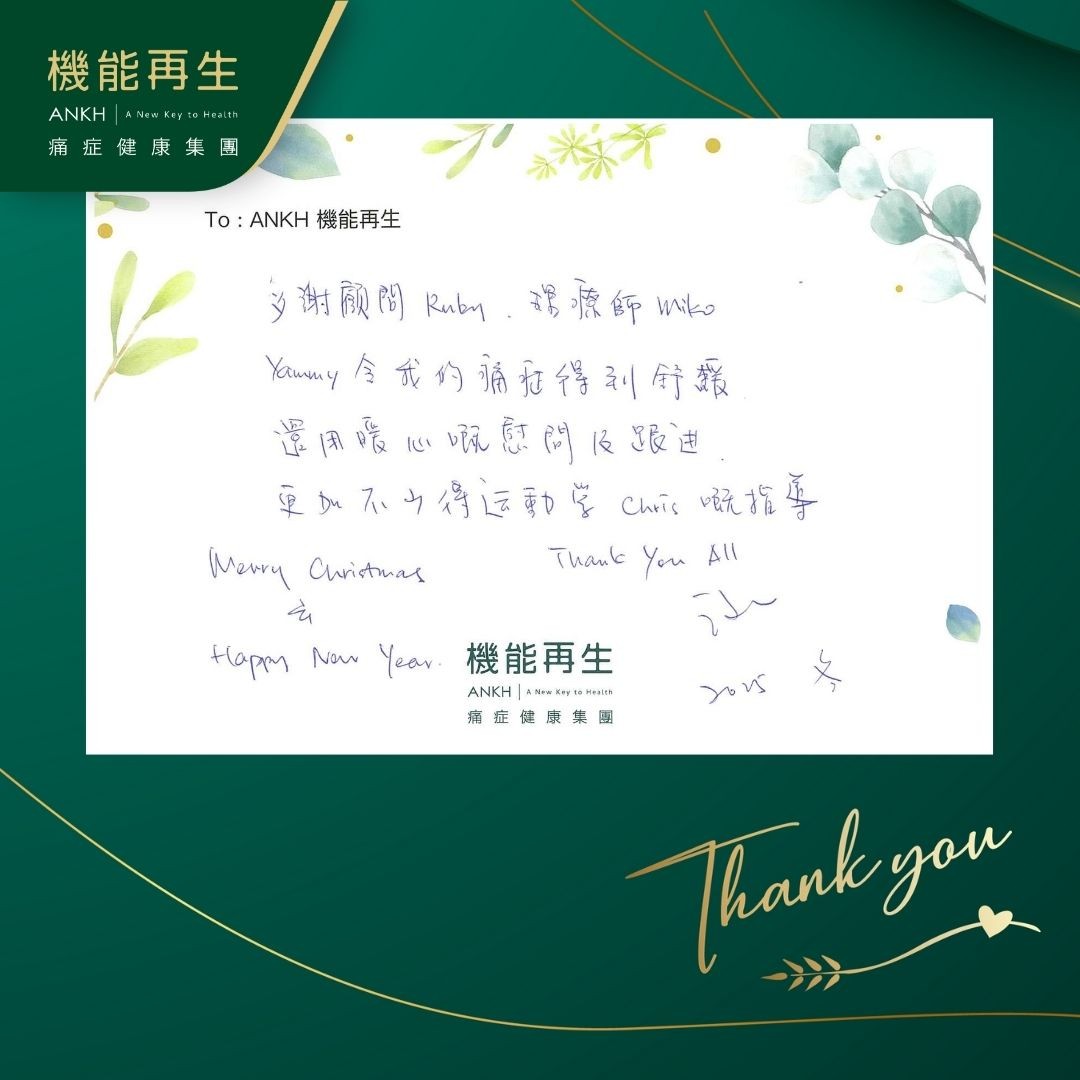 機能再生
ANKH | A New Key to Health
痛症健康集團
To : ANKH 機能再生
多謝顧問 Ruby. 理療師 Miko
Yammy 令我的痛症得到舒緩
還用暖心嘅慰問及跟进.
更加不少得运動学 Chris 嘅指導
Merry Christmas
Thank You All
&
Happy New Year.
機能再生
ANKH | A New Key to Health
痛症健康集團
2025 冬
Thank you